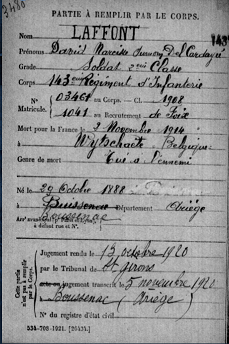 3480
PARTIE À REMPLIR PAR LE CORPS.
Nom LAFFONT
Prénoms Darius Narcisse
Grade Soldat 2eme Classe
Corps 143 eme Régiment d'Infanterie
N° 03468 au Corps. — Cl. 1908
Matricule. 1041 au Recrutement de Foix
Mort pour la France le 3 Novembre 1914
à Wytschaete Belgique
Genre de mort Tué à l'ennemi
Né le 29 Octobre 1888
à Buissenac Département Ariège
Boussenac
à défaut rue et N°.
Cette partie n'est pas à remplir par le Corps.
Jugement rendu le 13 octobre 1920
par le Tribunal de St Girons
acte ou jugement transcrit le 5 novembre 1920
à Boussenac (Ariège)
N° du registre d'état civil
534-708-1921. [26434.]